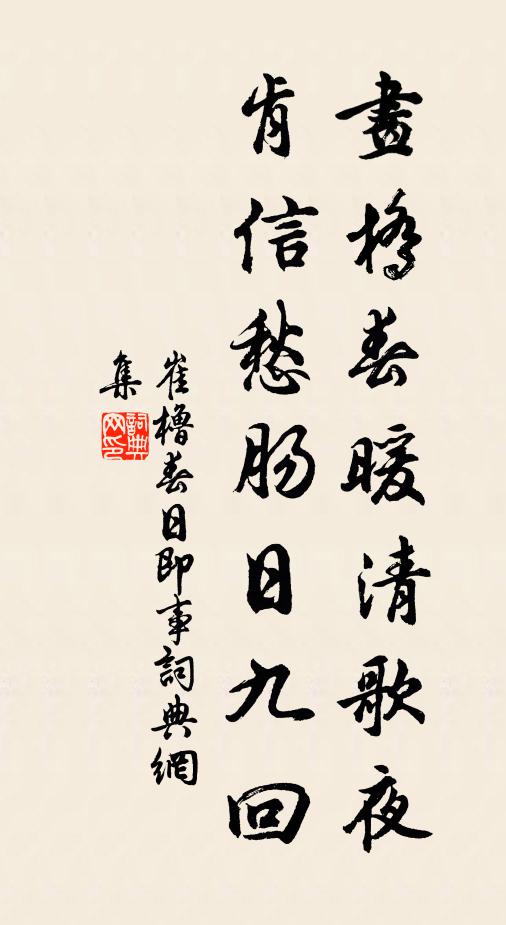 畫橋春暖清歌夜
肯信愁腸日九回
崔櫓春日即事詞典網
集
詞典
网印